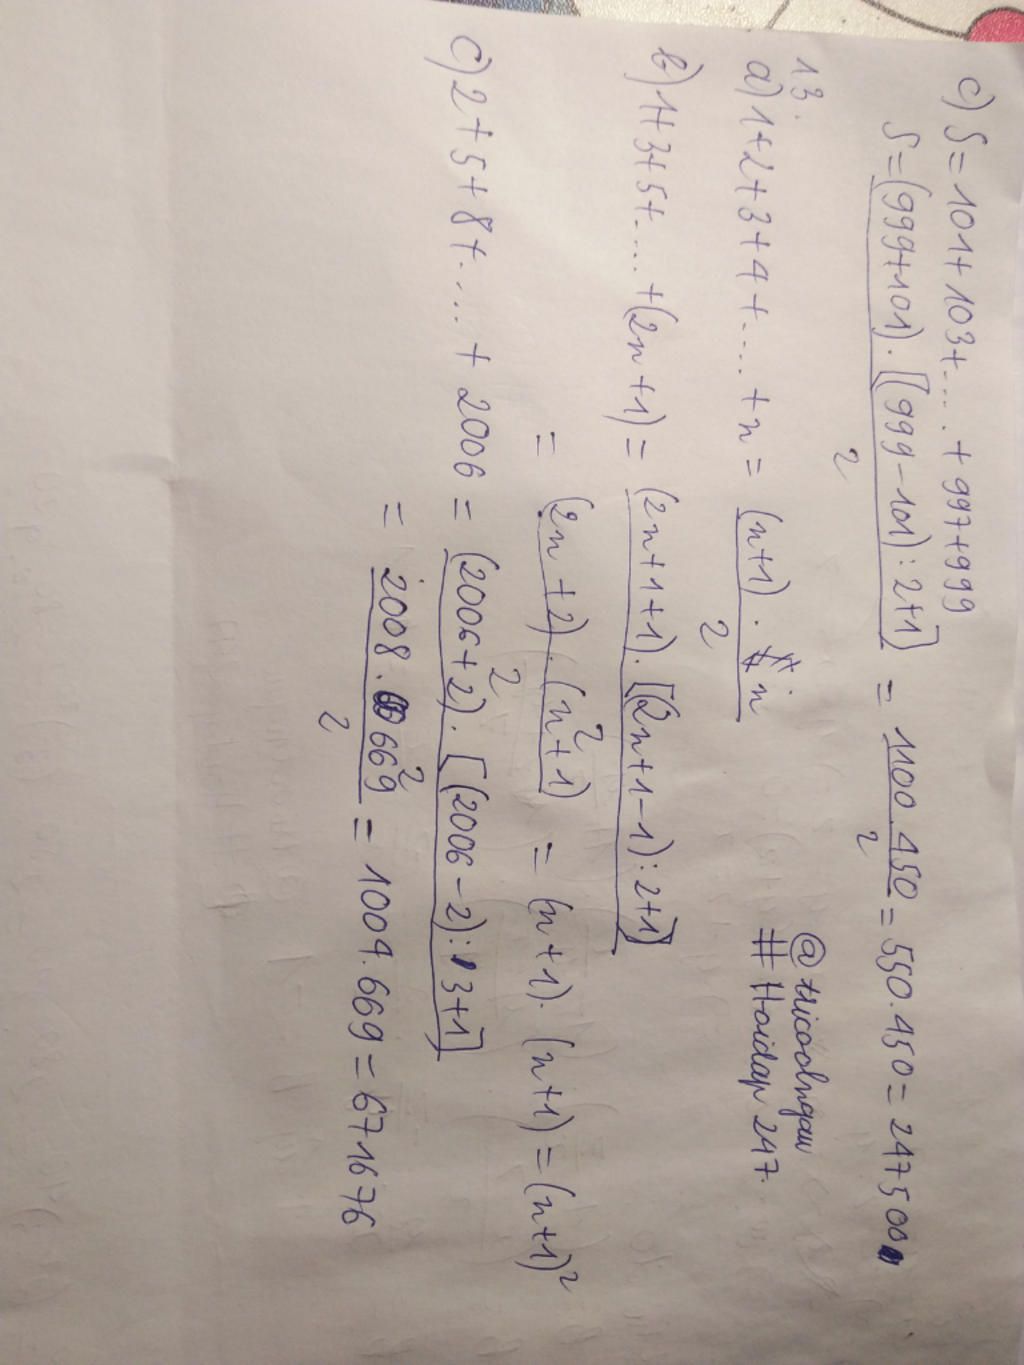 c) S = 101 + 103 + .... + 997 + 999
S = (999+101) . [(999 - 101) : 2+1] / 2 = 1100 . 450 / 2 = 550 . 450 = 247500
13.
a) 1 + 2 + 3 + 4 + .... + n = (n+1) . n / 2
@tricoolngau
# Hoidap 247.
b) 1 + 3 + 5 + .... + (2n + 1) = (2n + 1 + 1) . [(2n + 1 - 1) : 2+1] / 2
= (2n + 2) . (n + 1) / 2 = (n + 1) . (n + 1) = (n + 1)²
c) 2 + 5 + 8 + .... + 2006 = (2006 + 2) . [(2006 - 2) : 3+1] / 2
= 2008 . 669 / 2 = 1004 . 669 = 671676